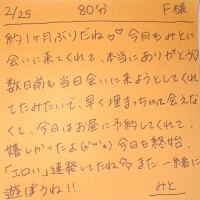 2/25 80分 F様
約1ヶ月ぶりだね♡♡今日もみとに
会いに来てくれて、本当にありがとう♡
数日前も当日会いに来ようとしてくれ
てたみたいで、早く埋まっちゃって会えな
くて、今日はお昼に予約してくれて
嬉しかったよ(*'ω'*)今日も終始、
「エロい」連発してたね♡♡また一緒に
遊ぼうね!!
みと